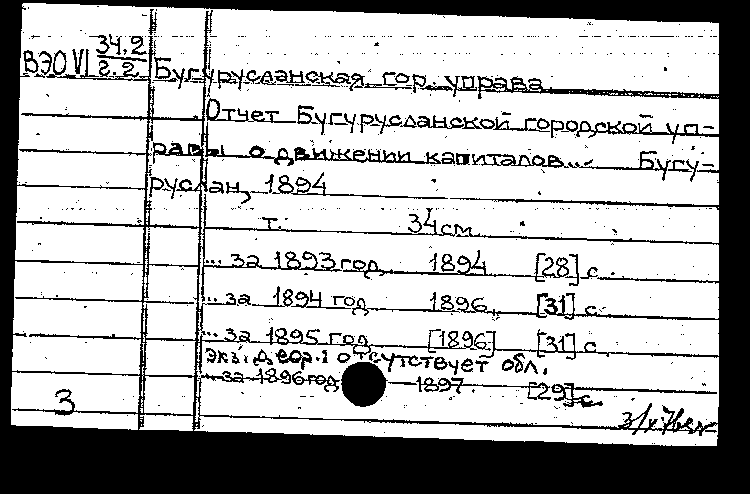 ВЭО VI 34.2
г.2 Бугурусланская гор. управа
Отчет Бугурусланской городской уп-
равы о движении капиталов... Бугу-
руслан, 1894
т. 34 см.
... за 1893 год 1894 [28] с.
... за 1894 год 1896 [31] с.
... за 1895 год [1896] [31] с.
отсутствует обл.
... за 1896 год 1897 [29] с.
3